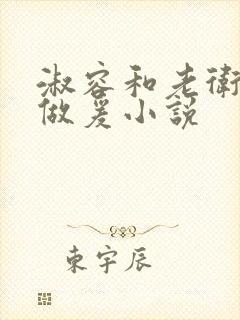 淑容和老衛
做爰小説
東宇辰